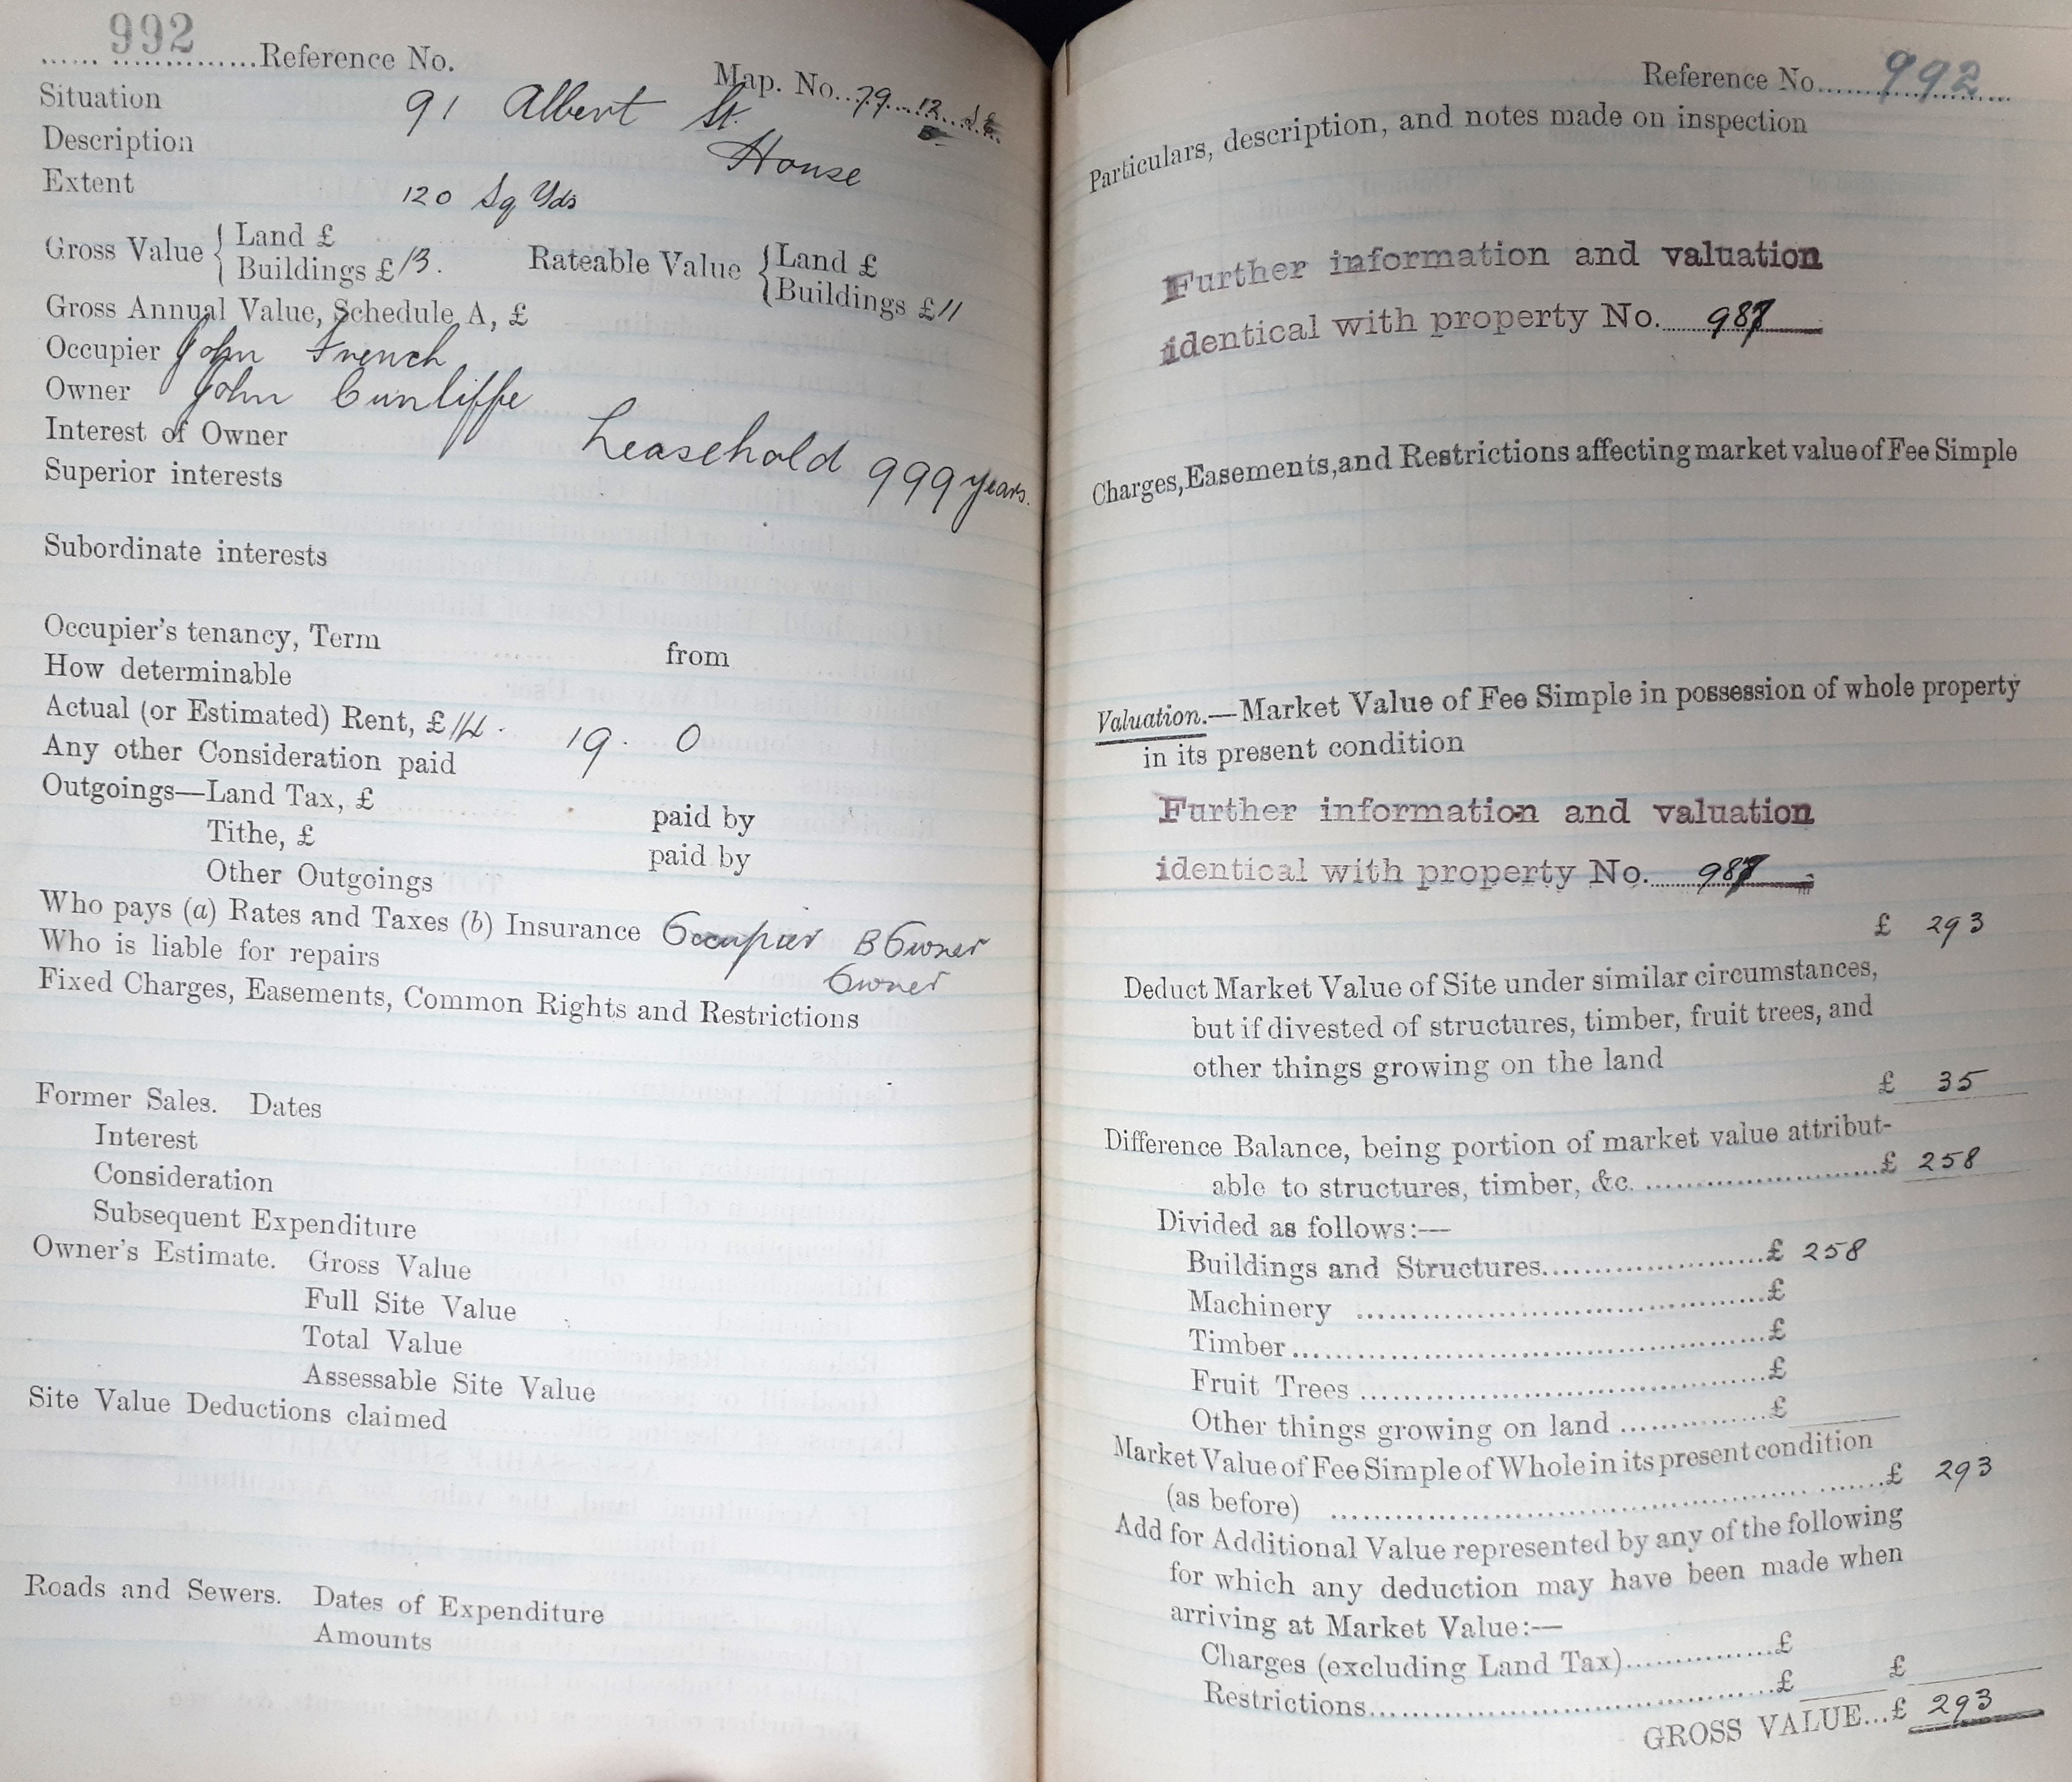 992
Reference No.
Map. No. 79 12
Situation 91 Albert St.
Description House
Extent 120 Sq Yds
Gross Value { Land £
Buildings £13.
Rateable Value { Land £
Buildings £11
Gross Annual Value, Schedule A, £
Occupier John French
Owner John Cunliffe
Interest of Owner Leasehold 999 years.
Superior interests
Subordinate interests
Occupier's tenancy, Term from
How determinable
Actual (or Estimated) Rent, £14. 19. 0
Any other Consideration paid
Outgoings—Land Tax, £ paid by
Tithe, £ paid by
Other Outgoings
Who pays (a) Rates and Taxes (b) Insurance Occupier B Owner
Who is liable for repairs Owner
Fixed Charges, Easements, Common Rights and Restrictions
Former Sales. Dates
Interest
Consideration
Subsequent Expenditure
Owner's Estimate. Gross Value
Full Site Value
Total Value
Assessable Site Value
Site Value Deductions claimed
Roads and Sewers. Dates of Expenditure
Amounts
Reference No. 992
Particulars, description, and notes made on inspection
Further information and valuation
identical with property No. 987
Charges, Easements, and Restrictions affecting market value of Fee Simple
Valuation.—Market Value of Fee Simple in possession of whole property
in its present condition
Further information and valuation
identical with property No. 987
£ 293
Deduct Market Value of Site under similar circumstances,
but if divested of structures, timber, fruit trees, and
other things growing on the land
£ 35
Difference Balance, being portion of market value attribut-
able to structures, timber, &c. £ 258
Divided as follows:—
Buildings and Structures £ 258
Machinery £
Timber £
Fruit Trees £
Other things growing on land £
Market Value of Fee Simple of Whole in its present condition
(as before) £ 293
Add for Additional Value represented by any of the following
for which any deduction may have been made when
arriving at Market Value:—
Charges (excluding Land Tax) £
Restrictions £ £
GROSS VALUE...£ 293